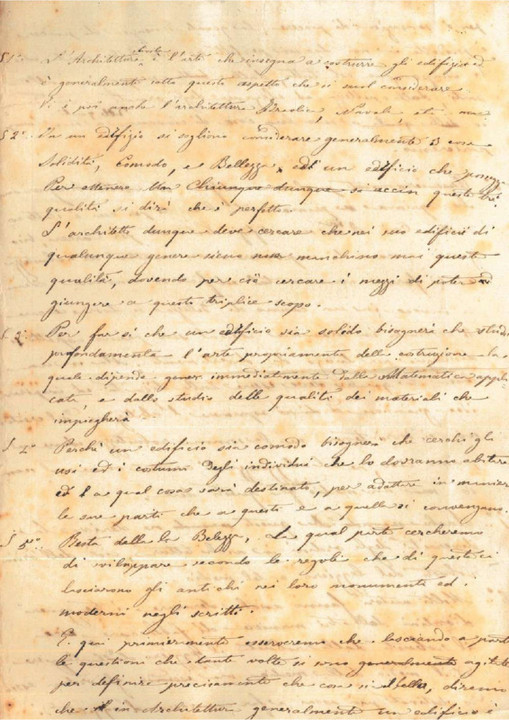 § 1° L'Architettura è l'arte che insegna a costrurre gli edifizi ed
è generalmente sotto questo aspetto che si suol considerare
Vi è poi anche l'architettura Navale,
§ 2° In un edifizio si sogliono considerare generalmente 3 cose
Solidità, Comodo, e Bellezza, ed un edificio che
Per ottenere Un Chiunque dunque si queste tre
qualità si dirà che è perfetto.
L'architetto dunque deve cercare che nei suo edificii di
qualunque genere sieno non manchino mai queste
qualità, dovendo per ciò cercare i mezzi di poter
giungere a questo triplice scopo.
Per far sì che un edificio sia solido bisognerà che studi
profondamente l'arte propriamente della costruzione la
quale dipende immediatamente dalla Matematica appli
cata e dallo studio delle qualità dei materiali che
impiegherà
Perchè un edificio sia comodo bisognerà che cerchi gli
usi ed i costumi degli individui che lo dovranno abitare
ed a qual cosa sarà destinato, per adattare in maniera
le sue parti che a queste e a quella si convengano.
§ 5° Resta della la Belezza, La qual parte cercheremo
di sviluppare secondo le regole che di questa ci
lasciarono gli antichi nei loro monumenti ed i
moderni negli scritti.
E qui primieramente osserveremo che lasciando a parte
le questioni che tante volte si sono generalmente agitate
per definire precisamente che cosa sia il bello, diremo
che in Architettura generalmente un edificio è